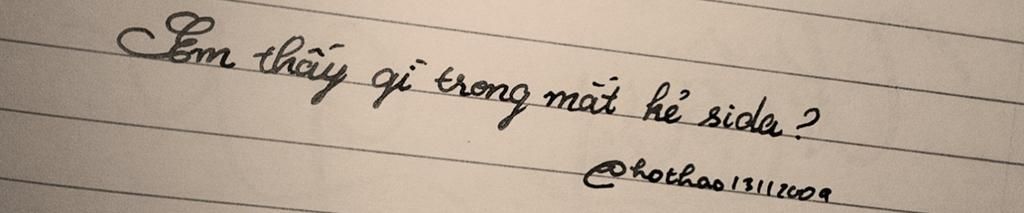 Em thấy gì trong mắt kẻ sida?
@hothao13112009